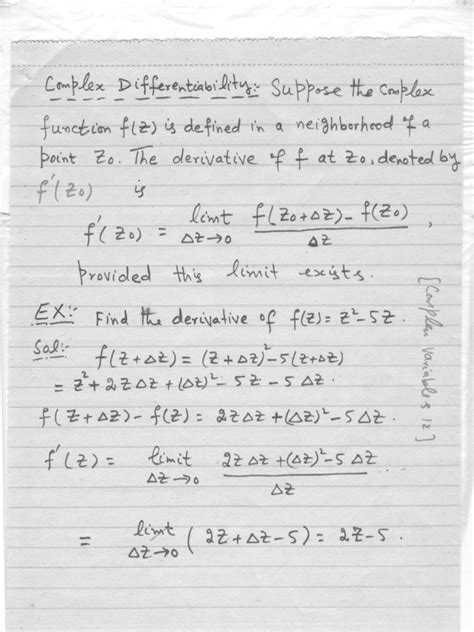 Complex Differentiability:- Suppose the complex
function f(z) is defined in a neighborhood of a
point Z₀. The derivative of f at Z₀, denoted by
f'(Z₀) is
f'(Z₀) = limt Δz→0 f(Z₀+Δz)-f(Z₀) / Δz ,
Provided this limit exists.
EX:- Find the derivative of f(z)= z²-5z.
Sol:- f(z+Δz) = (z+Δz)²-5(z+Δz)
= z²+2zΔz+(Δz)²-5z-5Δz.
f(z+Δz)-f(z) = 2zΔz+(Δz)²-5Δz.
f'(z) = limit Δz→0 2zΔz+(Δz)²-5Δz / Δz
= limt Δz→0 (2z+Δz-5) = 2z-5.
[Complex Variables 12]